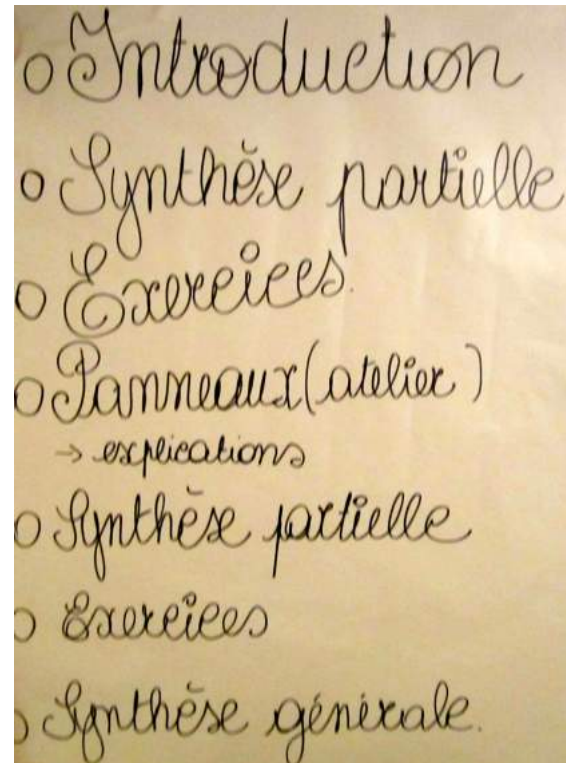 o Introduction
o Synthèse partielle
o Exercices.
o Panneaux (atelier)
→ explications
o Synthèse partielle
o Exercices
o Synthèse générale.